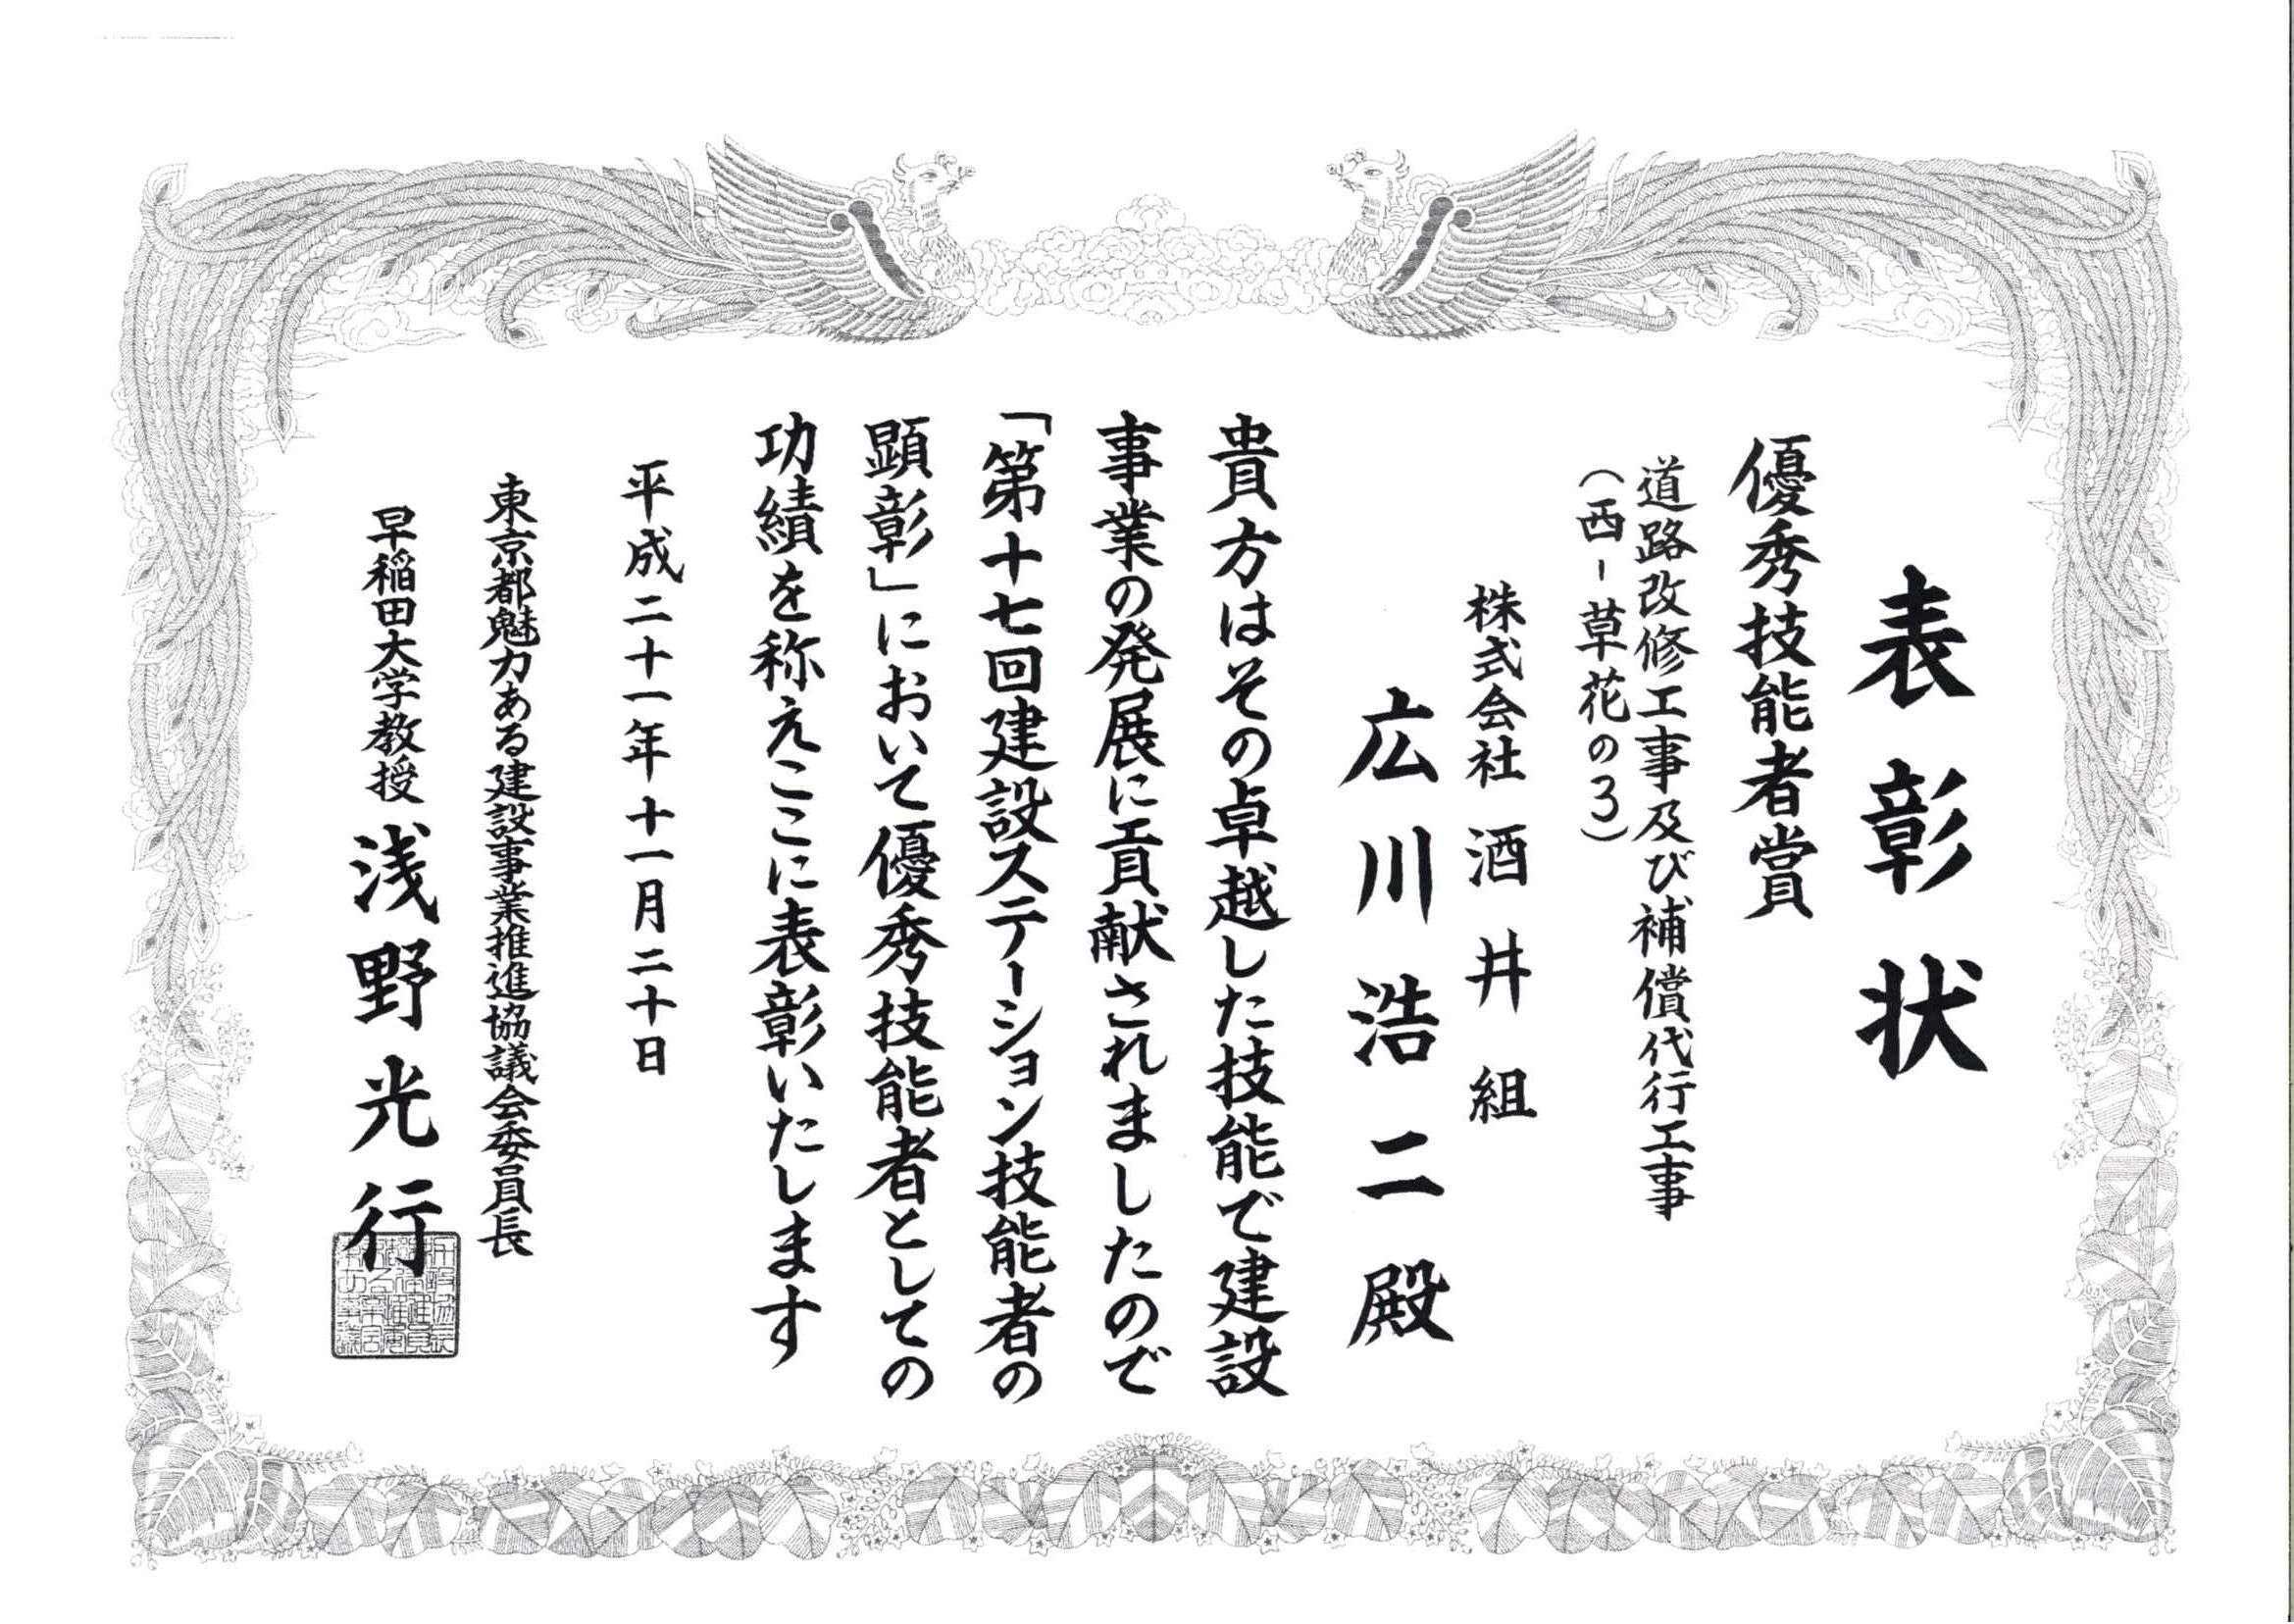 表彰状
優秀技能者賞
道路改修工事及び補償代行工事
（西－草花の３）
株式会社 酒井組
広川浩二殿
貴方はその卓越した技能で建設
事業の発展に貢献されましたので
「第十七回建設ステーション技能者の
顕彰」において優秀技能者としての
功績を称えここに表彰いたします
平成二十一年十一月二十日
東京都魅力ある建設事業推進協議会委員長
早稲田大学教授 浅野光行